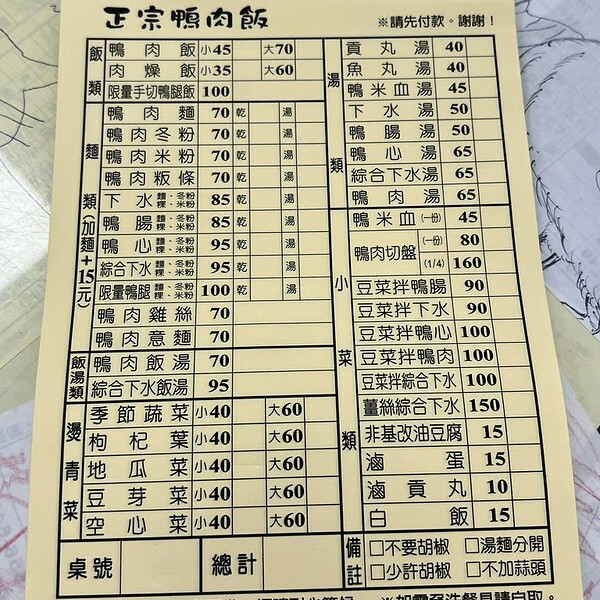 正宗鴨肉飯
※請先付款。謝謝！
飯類
鴨肉飯 小45 大70
肉燥飯 小35 大60
限量手切鴨腿飯 100
麵類(加麵+15元)
鴨肉麵 70 乾 湯
鴨肉冬粉 70 乾 湯
鴨肉米粉 70 乾 湯
鴨肉粄條 70 乾 湯
下水 麵、冬粉 粿、米粉 85 乾 湯
鴨腸 麵、冬粉 粿、米粉 85 乾 湯
鴨心 麵、冬粉 粿、米粉 95 乾 湯
綜合下水 麵、冬粉 粿、米粉 95 乾 湯
限量鴨腿 麵、冬粉 粿、米粉 100 乾 湯
鴨肉雞絲 70
鴨肉意麵 70
飯湯類
鴨肉飯湯 70
綜合下水飯湯 95
燙青菜
季節蔬菜 小40 大60
枸杞葉 小40 大60
地瓜菜 小40 大60
豆芽菜 小40 大60
空心菜 小40 大60
湯類
貢丸湯 40
魚丸湯 40
鴨米血湯 45
下水湯 50
鴨腸湯 50
鴨心湯 65
綜合下水湯 65
鴨肉湯 65
小菜類
鴨米血 (一份) 45
鴨肉切盤 (一份) 80
(1/4) 160
豆菜拌鴨腸 90
豆菜拌下水 90
豆菜拌鴨心 100
豆菜拌鴨肉 100
豆菜拌綜合下水 100
薑絲綜合下水 150
非基改油豆腐 15
滷蛋 15
滷貢丸 10
白飯 15
桌號 總計
備註
□不要胡椒 □湯麵分開
□少許胡椒 □不加蒜頭